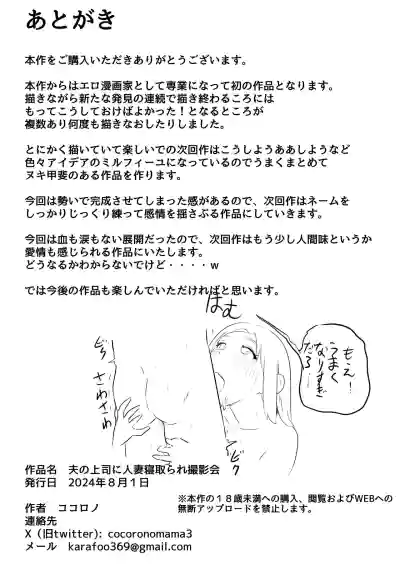 あとがき
本作をご購入いただきありがとうございます。
本作からはエロ漫画家として専業になって初の作品となります。
描きながら新たな発見の連続で描き終わるころには
もってこうしておけばよかった！となるところが
複数あり何度も描きなおしたりしました。
とにかく描いていて楽しいでの次回作はこうしようああしようなど
色々アイデアのミルフィーユになっているのでうまくまとめて
ヌキ甲斐のある作品を作ります。
今回は勢いで完成させてしまった感があるので、次回作はネームを
しっかりじっくり練って感情を揺さぶる作品にしていきます。
今回は血も涙もない展開だったので、次回作はもう少し人間味というか
愛情も感じられる作品にいたします。
どうなるかわからないでけど・・・・w
では今後の作品も楽しんでいただければと思います。
はむ
もぇ！
うまく
なりすぎ
だろ
さわさわ
ビク
作品名　夫の上司に人妻寝取られ撮影会
発行日　2024年８月１日
※本作の１８歳未満への購入、閲覧およびWEBへの
無断アップロードを禁止します。
作者　ココロノ
連絡先
X（旧twitter): cocoronomama3
メール　karafoo369@gmail.com